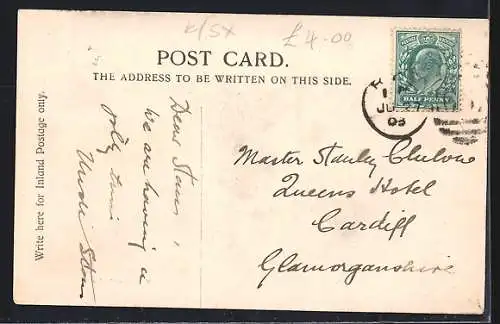 K/SX
£4-00
POST CARD.
THE ADDRESS TO BE WRITTEN ON THIS SIDE.
Write here for Inland Postage only.
Dear Stan,
We are having a
jolly time
Uncle
HALF PENNY
Master Stanley
Queens Hotel
Cardiff
Glamorganshire